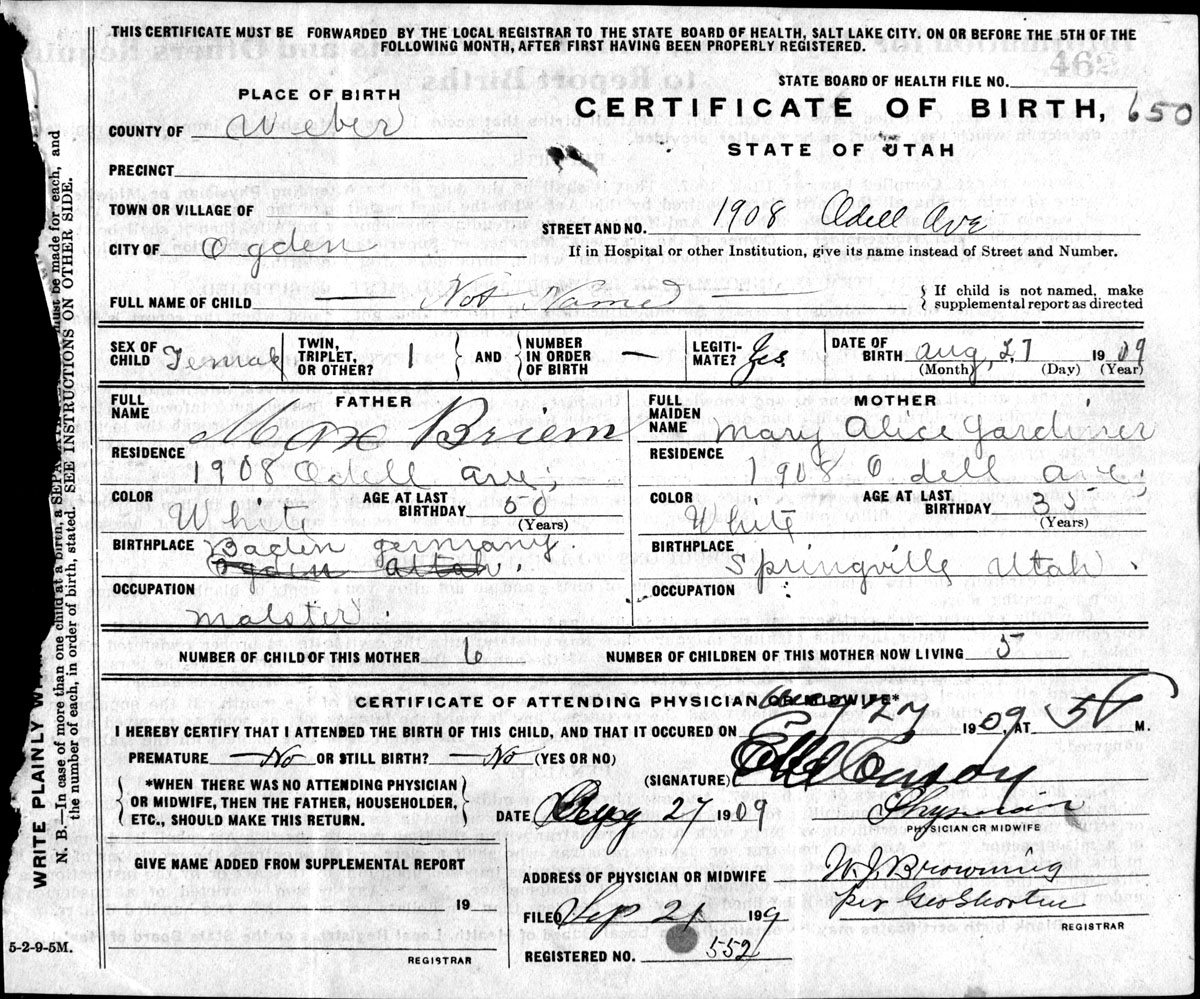 THIS CERTIFICATE MUST BE FORWARDED BY THE LOCAL REGISTRAR TO THE STATE BOARD OF HEALTH, SALT LAKE CITY. ON OR BEFORE THE 5TH OF THE
FOLLOWING MONTH, AFTER FIRST HAVING BEEN PROPERLY REGISTERED.
STATE BOARD OF HEALTH FILE NO.
462
PLACE OF BIRTH
CERTIFICATE OF BIRTH, 650
COUNTY OF Weber
STATE OF UTAH
PRECINCT
TOWN OR VILLAGE OF
STREET AND NO. 1908 Odell Ave
CITY OF Ogden
If in Hospital or other Institution, give its name instead of Street and Number.
FULL NAME OF CHILD — Not Named —
{ If child is not named, make
supplemental report as directed
SEX OF CHILD Female
TWIN, TRIPLET, OR OTHER? 1
AND NUMBER IN ORDER OF BIRTH —
LEGITI-MATE? Yes
DATE OF BIRTH Aug, 27 1909
(Month) (Day) (Year)
FULL NAME FATHER
Max Briem
RESIDENCE
1908 Odell Ave,
COLOR White AGE AT LAST BIRTHDAY 50
(Years)
BIRTHPLACE Baden Germany.
Ogden Utah.
OCCUPATION
Malster.
FULL MAIDEN NAME MOTHER
Mary Alice Gardiner
RESIDENCE
1908 Odell Ave,
COLOR White AGE AT LAST BIRTHDAY 35
(Years)
BIRTHPLACE
Springville Utah.
OCCUPATION
NUMBER OF CHILD OF THIS MOTHER 6 NUMBER OF CHILDREN OF THIS MOTHER NOW LIVING 5
CERTIFICATE OF ATTENDING PHYSICIAN OR MIDWIFE*
I HEREBY CERTIFY THAT I ATTENDED THE BIRTH OF THIS CHILD, AND THAT IT OCCURED ON 27 1909, AT 5 M.
PREMATURE — No OR STILL BIRTH? — No (YES OR NO)
(SIGNATURE)
*WHEN THERE WAS NO ATTENDING PHYSICIAN
OR MIDWIFE, THEN THE FATHER, HOUSEHOLDER,
ETC., SHOULD MAKE THIS RETURN.
DATE 27 1909 Physician
PHYSICIAN OR MIDWIFE
GIVE NAME ADDED FROM SUPPLEMENTAL REPORT
19
REGISTRAR
ADDRESS OF PHYSICIAN OR MIDWIFE W. J. Browning
FILED Sep 190 per Geo
REGISTRAR
REGISTERED NO. 552
5-2-9-5M.
WRITE PLAINLY
N. B.—In case of more than one child at a birth, a must be made for each, and
the number of each, in order of birth, stated. SEE INSTRUCTIONS ON OTHER SIDE.